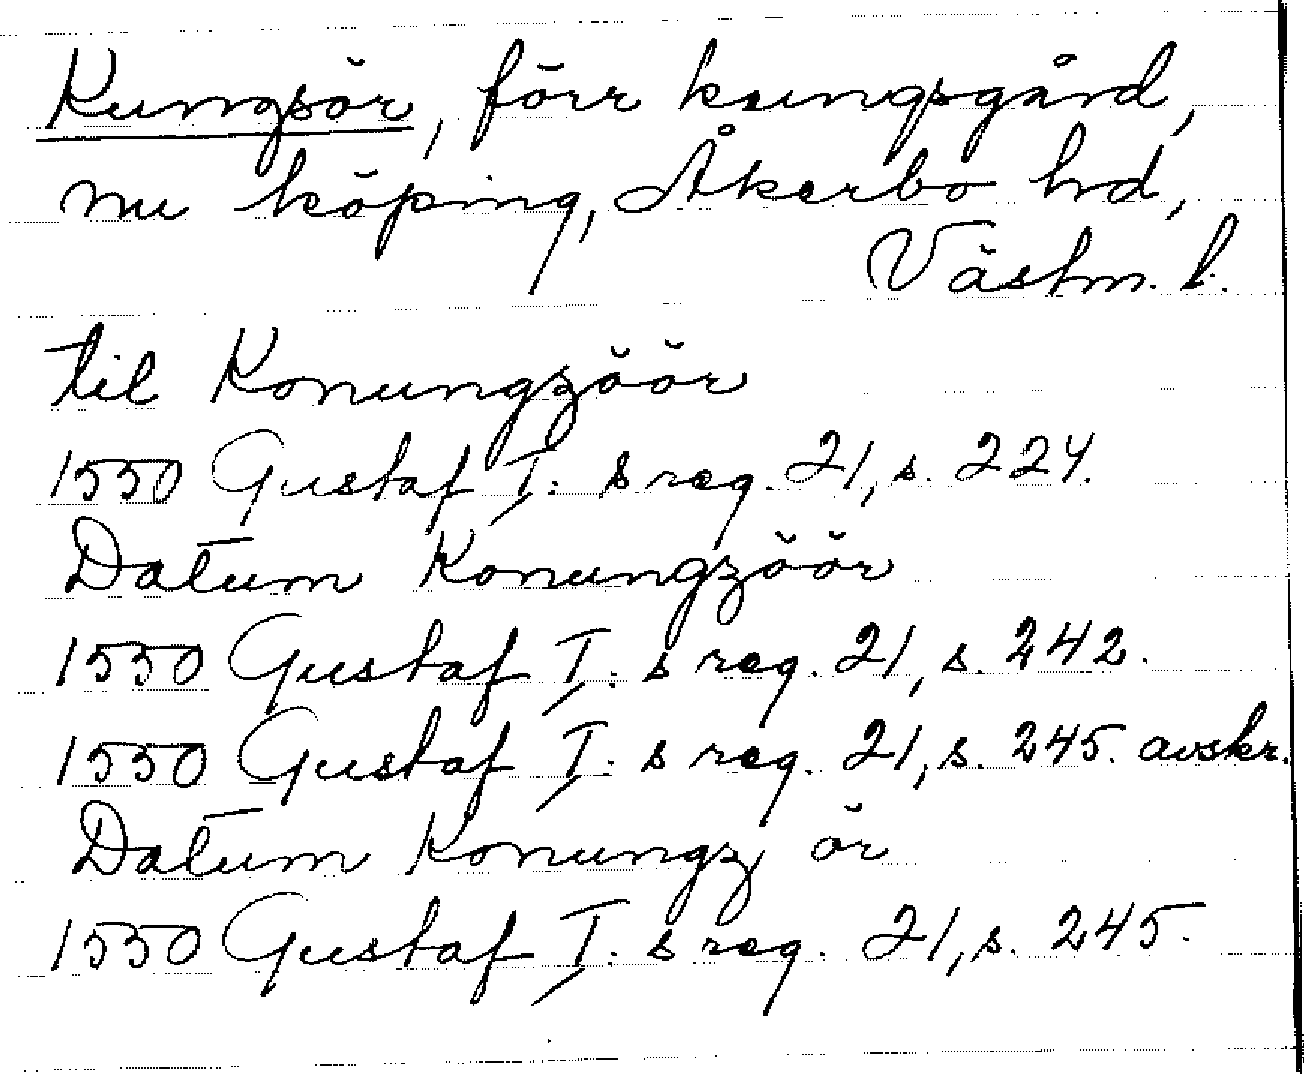 Kungsör, förr kungsgård,
nu köping, Åkerbo hd,
Västm. l.
til Konungzöör
1550 Gustaf I: s reg. 21, s. 224.
Datum Konungzöör
1550 Gustaf I: s reg. 21, s. 242.
1550 Gustaf I: s reg. 21, s. 245. avskr.
Datum Konungz ör
1550 Gustaf I: s reg. 21, s. 245.